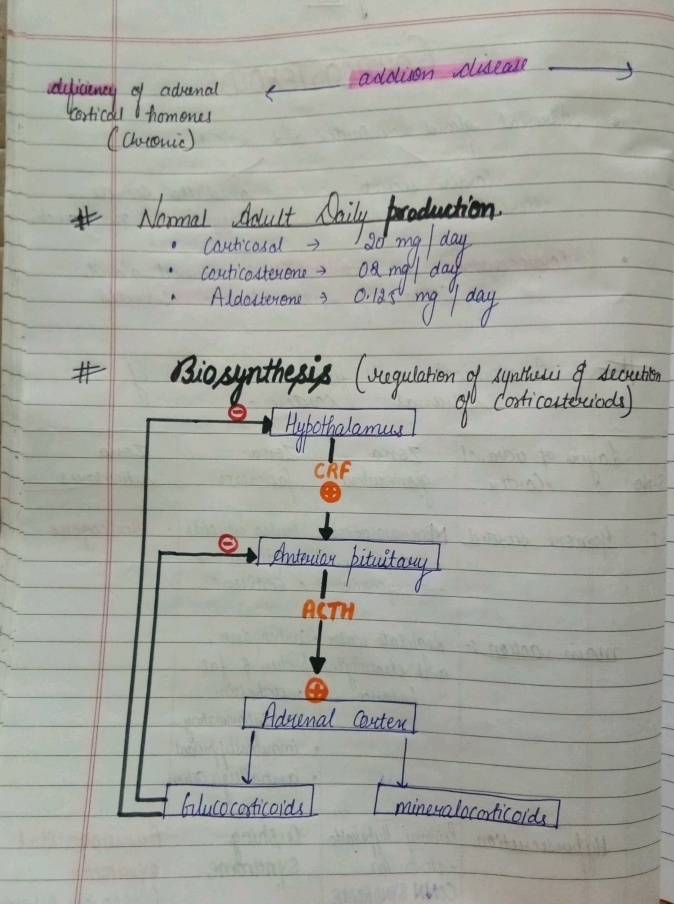 addison disease
deficiency of adrenal
cortical homones
(Chronic)
# Normal Adult Daily production.
• Corticosal → 20 mg / day
• corticosterone → 02 mg / day
• Aldosterone → 0.125 mg / day
# Biosynthesis (regulation of synthesis & secretion
of Corticosteriods)
Hypothalamus
CRF
Anterior pituitary
ACTH
Adrenal Cortex
Glucocorticoids
mineralocorticoids